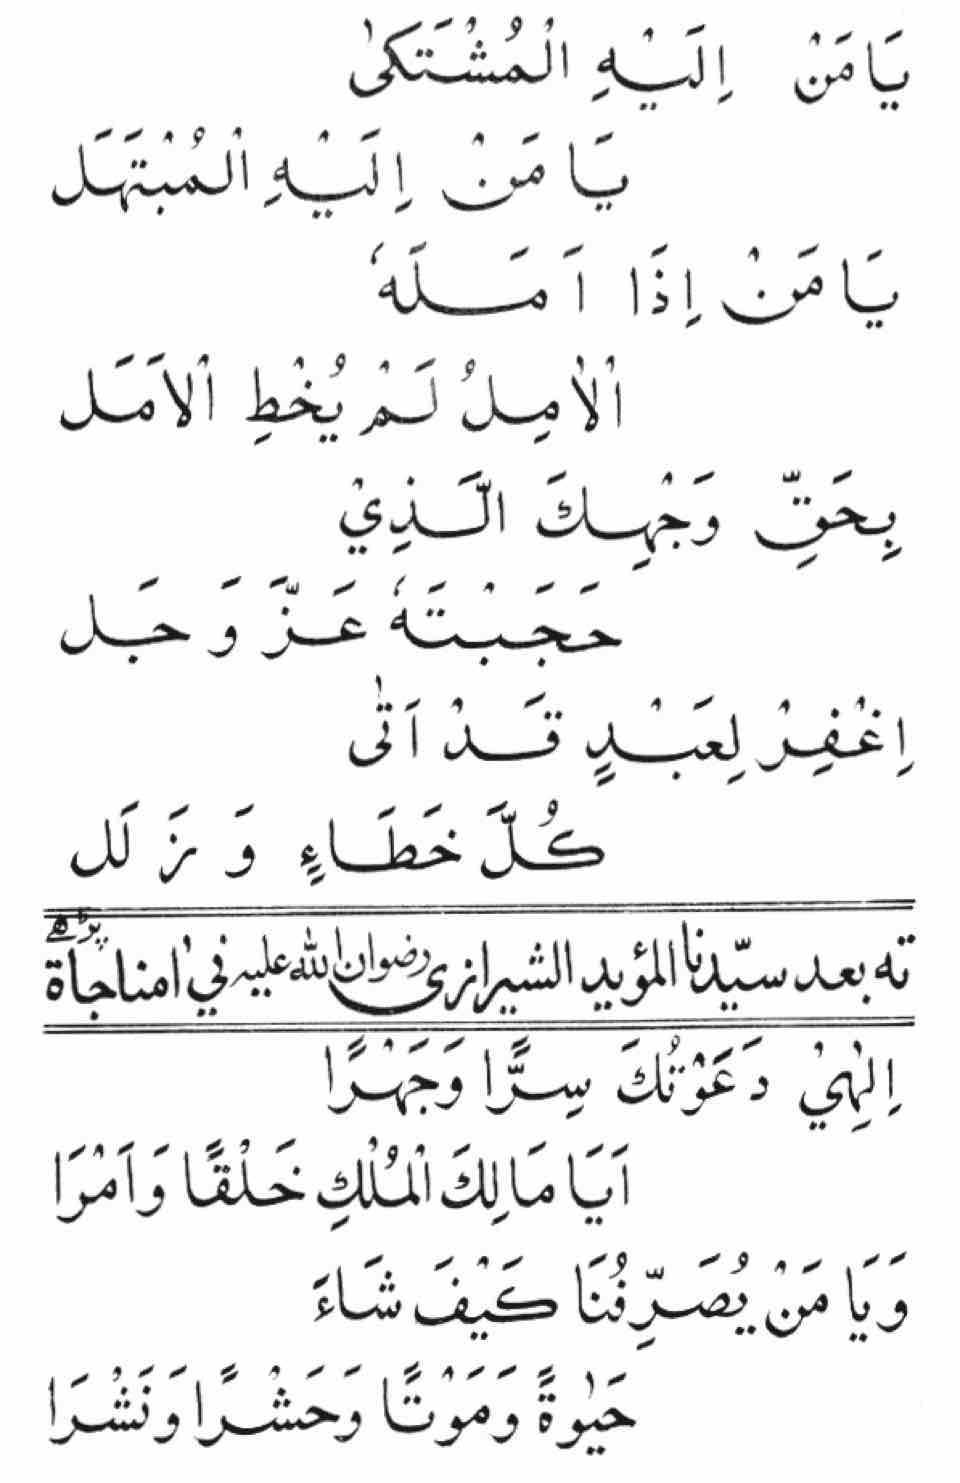 يَا مَنْ اِلَيْهِ الْمُشْتَكىٰ
يَا مَنْ اِلَيْهِ الْمُبْتَهَل
يَا مَنْ اِذَا اَمَلَهٗ
الْاٰمِلُ لَمْ يُخْطِ الْاَمَل
بِحَقِّ وَجْهِكَ الَّذِيْ
حَجَبْتَهٗ عَزَّ وَ جَل
اِغْفِرْ لِعَبْدٍ قَدْ اَتٰى
كُلَّ خَطَاءٍ وَ زَلَل
ته بعد سيّدنا المؤيد الشيرازي رضوان الله عليه في امناجاة پڑھے
اِلٰهِيْ دَعَوْتُكَ سِرًّا وَجَهْرًا
اَيَا مَالِكَ الْمُلْكِ خَلْقًا وَاَمْرَا
وَيَا مَنْ يُصَرِّفُنَا كَيْفَ شَاءَ
حَيٰوةً وَمَوْتًا وَحَشْرًا وَنَشْرَا